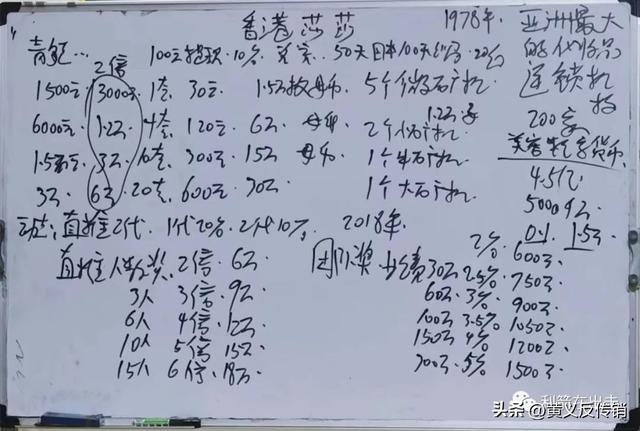 香港莎莎
1978年. 亚洲最大
的化妆品
连锁机
构
200家
美容 数字货币
4.5亿
5000万
0.1 1.5元
100元 10%. 50天回本 100天 20台
2倍
1500元 3000元 1套 30元. 1.5万枚母币. 5个微石矿机
6000元 1.2万 4套 120元. 6万 母币. 2个小石矿机. 1.2万
1.5万元 3万 10套. 300元 15万 母币. 1个中石矿机.
3万 6万 20套. 600元. 30万 1个大石矿机.
动态: 直推2代. 1代20%. 2代10%. 2018年.
直推人数奖. 2倍. 6万
3人 3倍. 9万
6人 4倍. 12万
10人 5倍 15万
15人 6倍. 18万
团队奖 2% 600元.
30万 2.5% 750元.
60万. 3% 900元.
100万 3.5% 1050元.
150万 4% 1200元.
300万. 5% 1500元.
利箭在出击
头条@黄义反传销